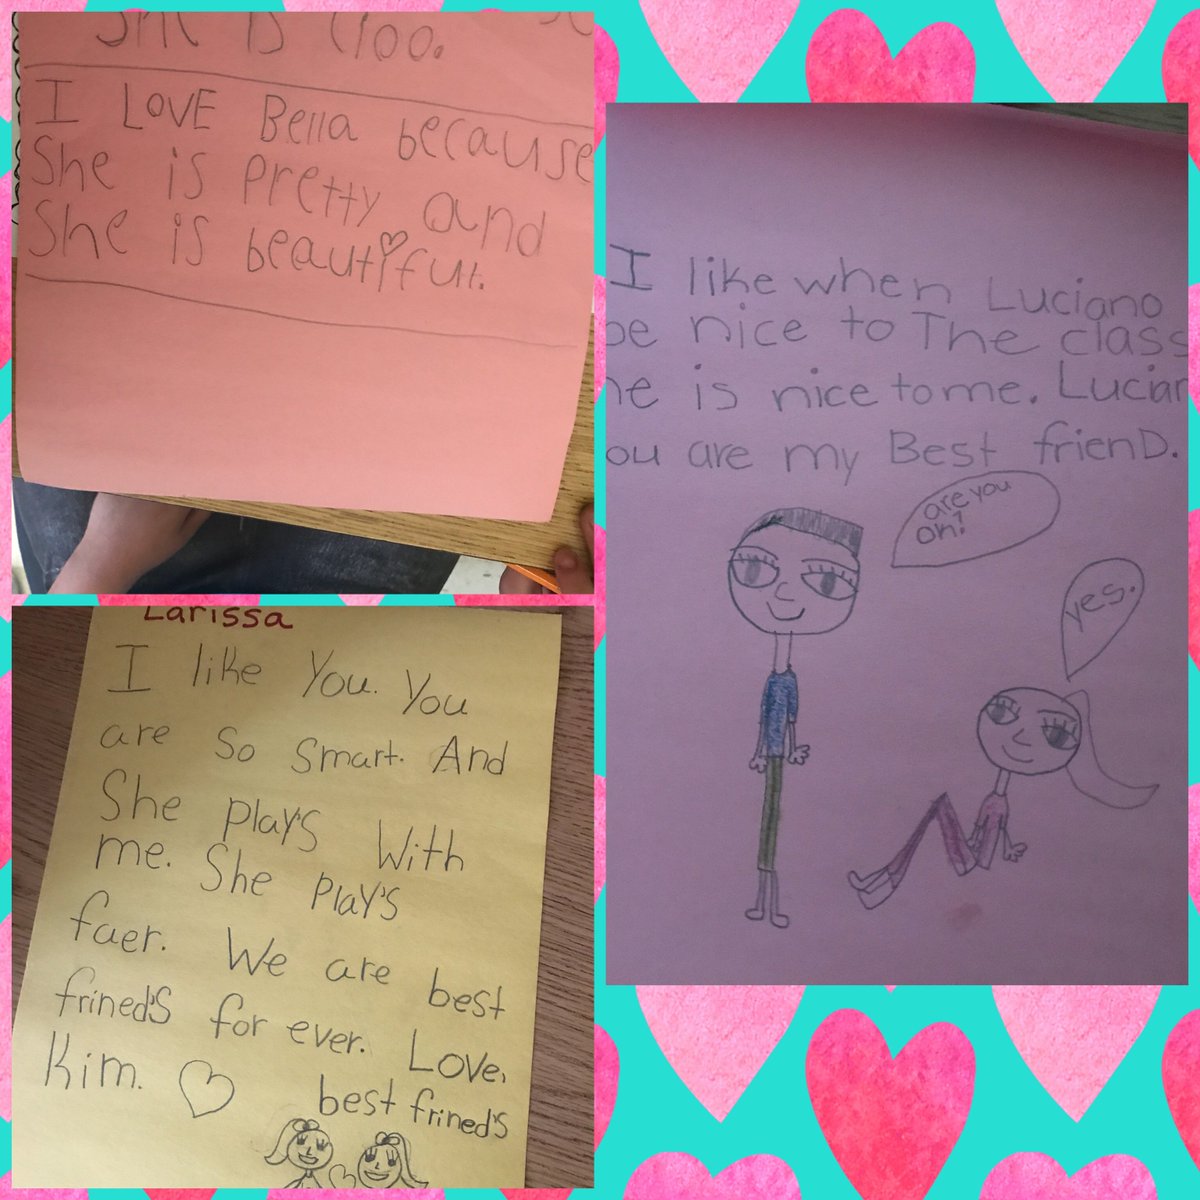 She is cloo.
I LOVE Bella because
She is pretty and
She is beautiful.
Larissa
I like You. You
are so smart. And
She play's with
me. She play's
faer. We are best
frined's for ever. Love,
Kim.
best frined's
I like when Luciano
be nice to The class
he is nice to me. Lucian
ou are my Best frienD.
are you
oh?
yes.